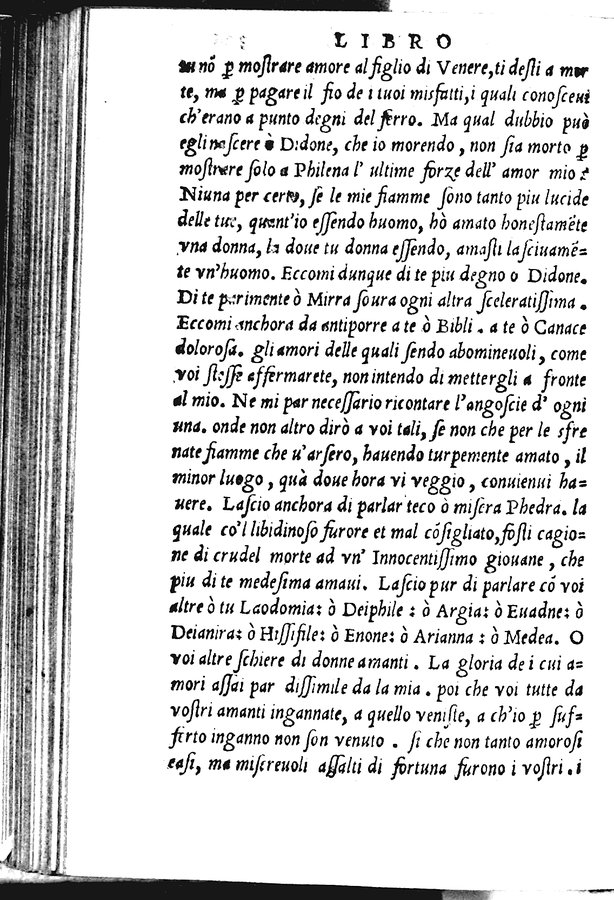 LIBRO
tu nõ p̱ moſtrare amore al figlio di Venere, ti deſti a mor
te, ma p̱ pagare il fio de i tuoi misfatti, i quali conoſceui
ch'erano a punto degni del ferro. Ma qual dubbio può
egli naſcere ò Didone, che io morendo, non ſia morto p̱
moſtrare ſolo a Philena l'ultime forze dell'amor mio?
Niuna per certo, ſe le mie fiamme ſono tanto piu lucide
delle tue, quant'io eſſendo huomo, hò amato honeſtamẽte
vna donna, la doue tu donna eſſendo, amaſti laſciuamẽ=
te vn'huomo. Eccomi dunque di te piu degno o Didone.
Di te parimente ò Mirra ſoura ogni altra ſceleratiſſima.
Eccomi anchora da antiporre a te ò Bibli. a te ò Canace
doloroſa. gli amori delle quali ſendo abomineuoli, come
voi ſteſſe affermarete, non intendo di mettergli a fronte
al mio. Ne mi par neceſſario ricontare l'angoſcie d'ogni
una. onde non altro dirò a voi tali, ſe non che per le sfre
nate fiamme che u'arſero, hauendo turpemente amato, il
minor luogo, quà doue hora vi veggio, conuienui ha=
uere. Laſcio anchora di parlar teco ò miſera Phedra. la
quale co'l libidinoſo furore et mal cõſigliato, foſti cagio=
ne di crudel morte ad vn' Innocentiſſimo giouane, che
piu di te medeſima amaui. Laſcio pur di parlare cõ voi
altre ò tu Laodomia: ò Deiphile: ò Argia: ò Euadne: ò
Deianira: ò Hiſſifile: ò Enone: ò Arianna: ò Medea. O
voi altre ſchiere di donne amanti. La gloria de i cui a=
mori aſſai par diſſimile da la mia. poi che voi tutte da
voſtri amanti ingannate, a quello veniſte, a ch'io p̱ ſuf=
ferto inganno non ſon venuto. ſi che non tanto amoroſi
caſi, ma miſereuoli aſſalti di fortuna furono i voſtri. i